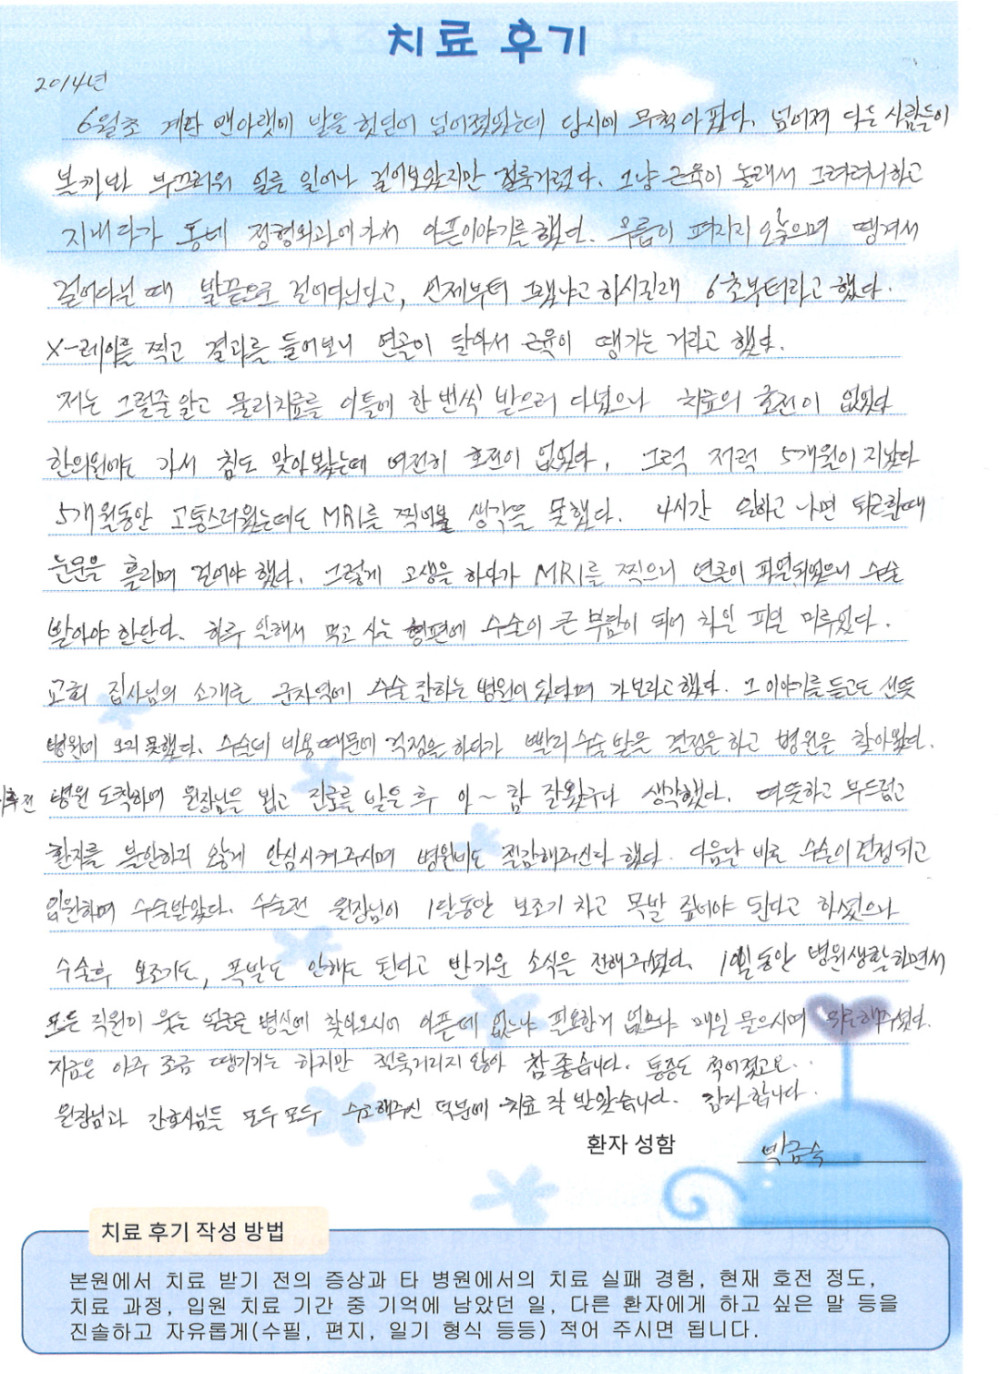 치료 후기
2014년
6월초 계단 맨아랫에 발을 헛딛어 넘어졌었는데 당시에 무척 아팠다. 넘어져 다른 사람들이
볼까봐 부끄러워 얼른 일어나 걸어보았지만 절룩거렸다. 그냥 근육이 놀래서 그러려니하고
지내다가 동네 정형외과에 가서 아픈이야기를 했다. 무릎이 펴지지 않으며 땡겨서
걸어다닐 때 발끝으로 걸어다닌다고, 언제부터 그랬냐고 하시길래 6초부터라고 했다.
X-레이를 찍고 결과를 들어보니 연골이 닳아서 근육이 땡기는 거라고 했다.
저는 그럴줄 알고 물리치료를 이틀에 한 번씩 받으러 다녔으나 치료의 호전이 없었다
한의원에도 가서 침도 맞아봤는데 여전히 호전이 없었다, 그럭 저럭 5개월이 지났다
5개월동안 고통스러웠는데도 MRI를 찍어볼 생각을 못했다. 4시간 일하고 나면 퇴근할때
눈물을 흘리며 걸어야 했다. 그렇게 고생을 하다가 MRI를 찍으니 연골이 파열되었으니 수술
받아야 한단다. 하루 일해서 먹고 사는 형편에 수술이 큰 부담이 되어 차일 피일 미루었다.
교회 집사님의 소개로 군자역에 수술 잘하는 병원이 있다며 가보라고 했다. 그 이야기를 듣고도 선뜻
병원에 오지 못했다. 수술비 비용때문에 걱정을 하다가 빨리 수술 받을 결정을 하고 병원을 찾아왔다.
병원 도착하여 원장님을 뵙고 진료를 받은 후 아~ 참 잘왔구나 생각했다. 따뜻하고 부드럽고
환자를 불안하지 않게 안심시켜주시며 병원비도 절감해주신다 했다. 다음날 바로 수술이 결정되고
입원하여 수술받았다. 수술전 원장님이 1달동안 보조기 차고 목발 짚어야 된다고 하셨으나
수술후 보조기도, 목발도 안해도 된다고 반가운 소식을 전해주셨다. 동안 병원생활하면서
모든 직원이 웃는 얼굴로 병실에 찾아오시어 아픈데 없느냐 필요한거 없으냐 매일 물으시며 해주셨다.
지금은 아주 조금 땡기기는 하지만 절룩거리지 않아 참 좋습니다. 통증도 적어졌고요..
원장님과 간호사님들 모두 모두 수고해주신 덕분에 치료 잘 받았습니다. 감사 합니다.
환자 성함 박금숙
치료 후기 작성 방법
본원에서 치료 받기 전의 증상과 타 병원에서의 치료 실패 경험, 현재 호전 정도,
치료 과정, 입원 치료 기간 중 기억에 남았던 일, 다른 환자에게 하고 싶은 말 등을
진솔하고 자유롭게(수필, 편지, 일기 형식 등등) 적어 주시면 됩니다.